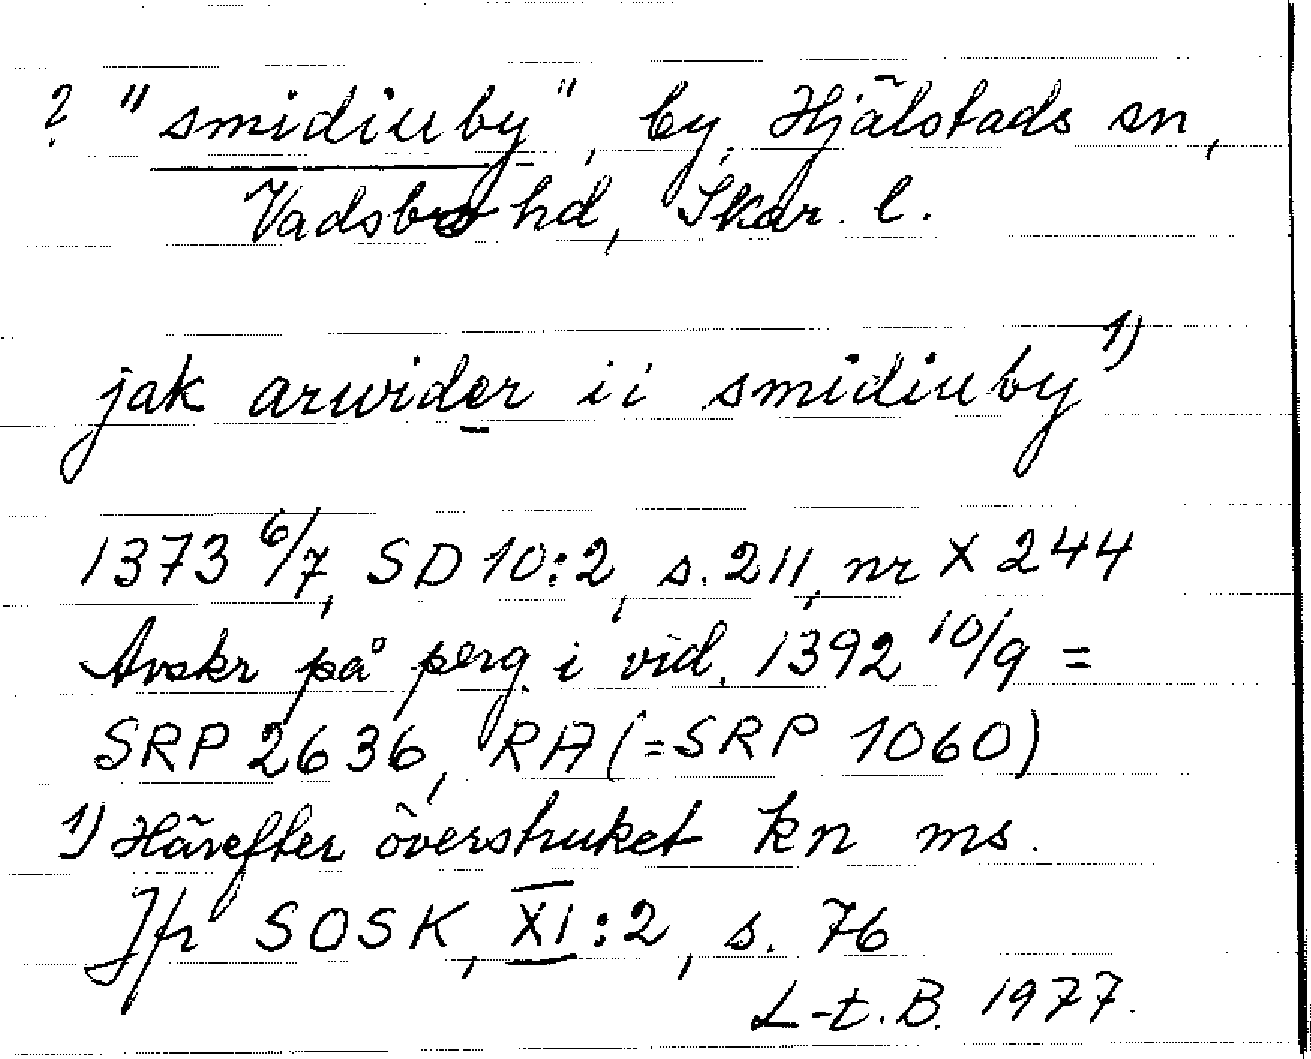 ? "smidiuby", by, Hjälstads sn,
Vadsbo hd, Skar. l.
jak arwider ii smidiuby 1)
1373 6/7, SD 10:2, s. 211, nr X 244
Avskr på perg. i vid. 1392 10/9 =
SRP 2636, RA (=SRP 1060)
1) Härefter överstruket kn ms.
Jfr SOSK, XI:2, s. 76
L-t. B. 1977.